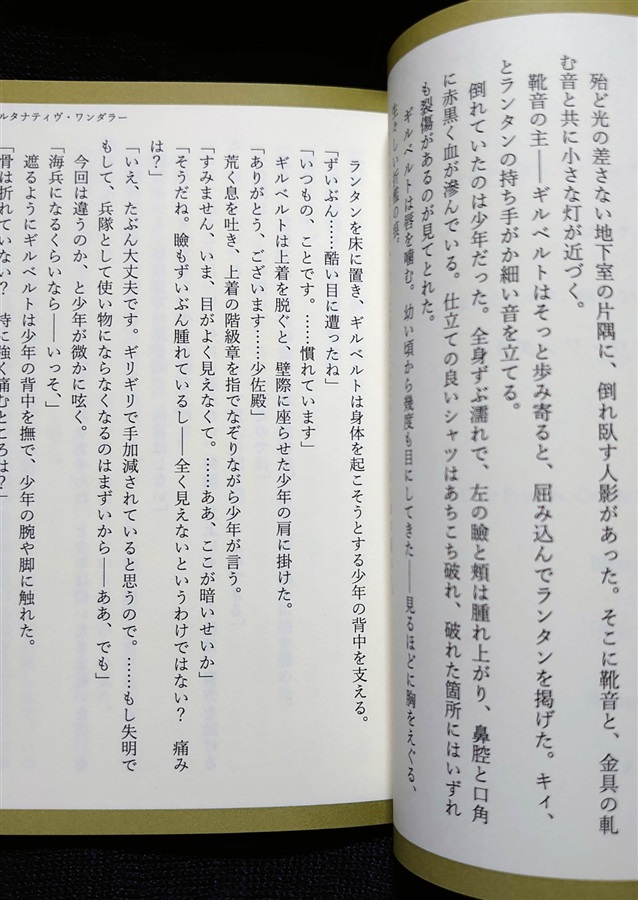 殆ど光の差さない地下室の片隅に、倒れ臥す人影があった。そこに靴音と、金具の軋
む音と共に小さな灯が近づく。
靴音の主――ギルベルトはそっと歩み寄ると、屈み込んでランタンを掲げた。キィ、
とランタンの持ち手がか細い音を立てる。
倒れていたのは少年だった。全身ずぶ濡れで、左の瞼と頬は腫れ上がり、鼻腔と口角
に赤黒く血が滲んでいる。仕立ての良いシャツはあちこち破れ、破れた箇所にはいずれ
も裂傷があるのが見てとれた。
ギルベルトは唇を噛む。幼い頃から幾度も目にしてきた――見るほどに胸をえぐる、
生々しい折檻の痕。
ルタナティヴ・ワンダラー
ランタンを床に置き、ギルベルトは身体を起こそうとする少年の背中を支える。
「ずいぶん……酷い目に遭ったね」
「いつもの、ことです。……慣れています」
ギルベルトは上着を脱ぐと、壁際に座らせた少年の肩に掛けた。
「ありがとう、ございます……少佐殿」
荒く息を吐き、上着の階級章を指でなぞりながら少年が言う。
「すみません、いま、目がよく見えなくて。……ああ、ここが暗いせいか」
「そうだね。瞼もずいぶん腫れているし――全く見えないというわけではない？　痛み
は？」
「いえ、たぶん大丈夫です。ギリギリで手加減されていると思うので。……もし失明で
もして、兵隊として使い物にならなくなるのはまずいから――ああ、でも」
今回は違うのか、と少年が微かに呟く。
「海兵になるくらいなら――いっそ、」
遮るようにギルベルトは少年の背中を撫で、少年の腕や脚に触れた。
「骨は折れていない？　特に強く痛むところは？」